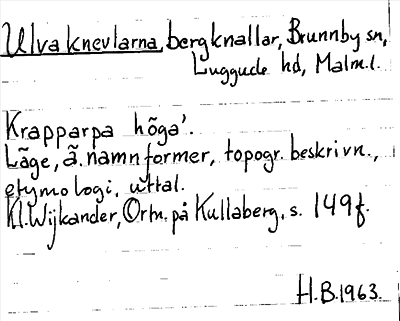 Ulvaknevlarna, bergknallar, Brunnby sn,
Luggude hd, Malm.l.
Krapparpa höga'.
Läge, ä. namnformer, topogr. beskrivn.,
etymologi, uttal.
Kl. Wijkander, Ortn. på Kullaberg, s. 149f.
H.B.1963.